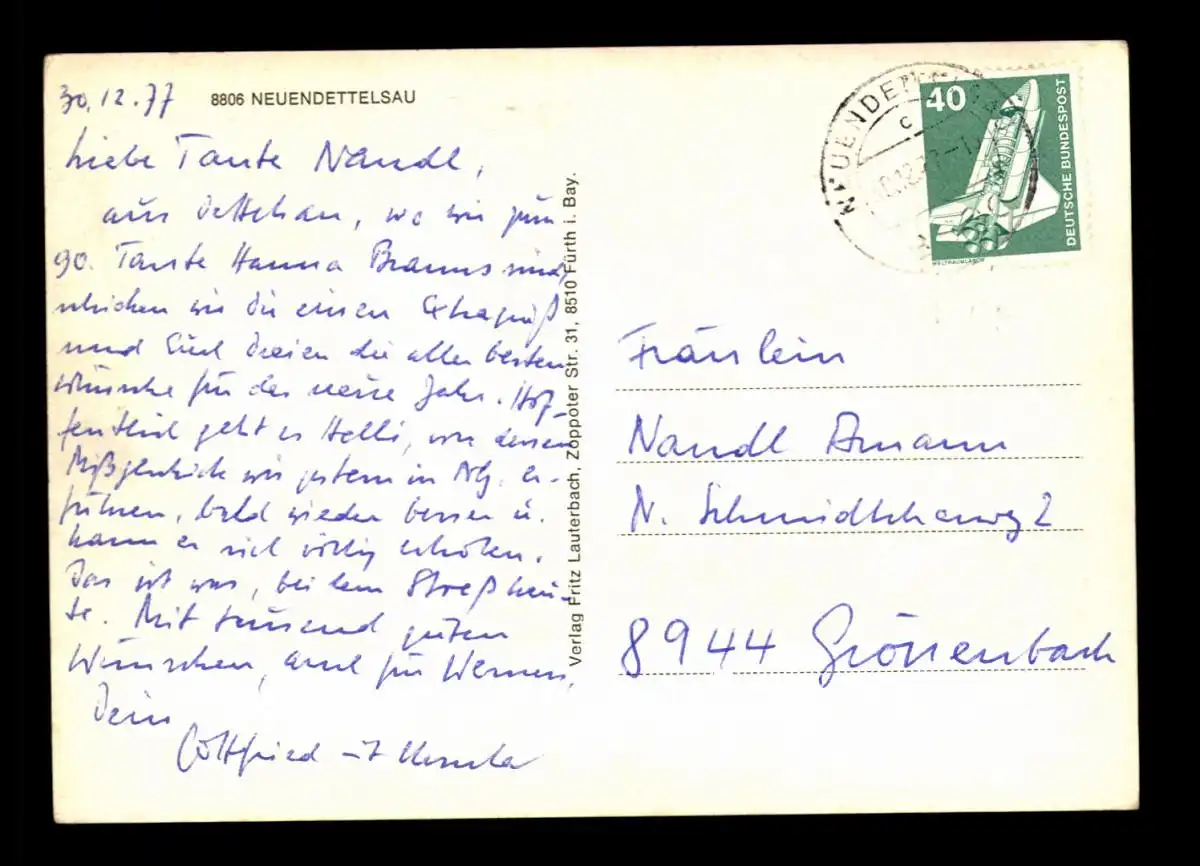 30.12.77
8806 NEUENDETTELSAU
Liebe Tante Nandl,
aus Dettelsau, wo wir zum
90. Tante Hanna Brauns sind,
schicken wir Dir einen Extragruß
und Euch Dreien die aller besten
Wünsche für das neue Jahr. Hof-
fentlich geht es Helli, von dessen
Mißgeschick wir gestern in Nbg. er-
fuhren, bald wieder besser u.
kann er sich völlig erholen.
Das ist was, bei dem Streß heu-
te. Mit tausend guten
Wünschen, auch für Werner,
Dein
Gottfried mit Ursula
Verlag Fritz Lauterbach, Zoppoter Str. 31, 8510 Fürth i. Bay.
40
DEUTSCHE BUNDESPOST
WELTRAUMLABOR
Fräulein
Nandl Amann
8944 Grönenbach